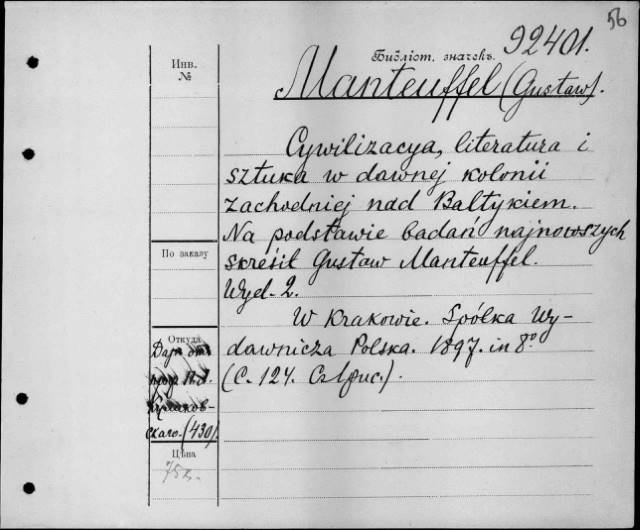 56
92401.
Инв.
№
Библіот. значекъ.
Manteuffel (Gustaw).
Cywilizacya, literatura i
sztuka w dawnej kolonii
zachodniej nad Bałtykiem.
Na podstawie badań najnowszych
skreślił Gustaw Manteuffel.
Wyd. 2.
W Krakowie. Spółka Wy-
dawnicza Polska. 1897. in 8°
(С. 124. Съ рис.).
По заказу
Откуда
Даръ отъ
проф.
скаго. (430).
Цѣна